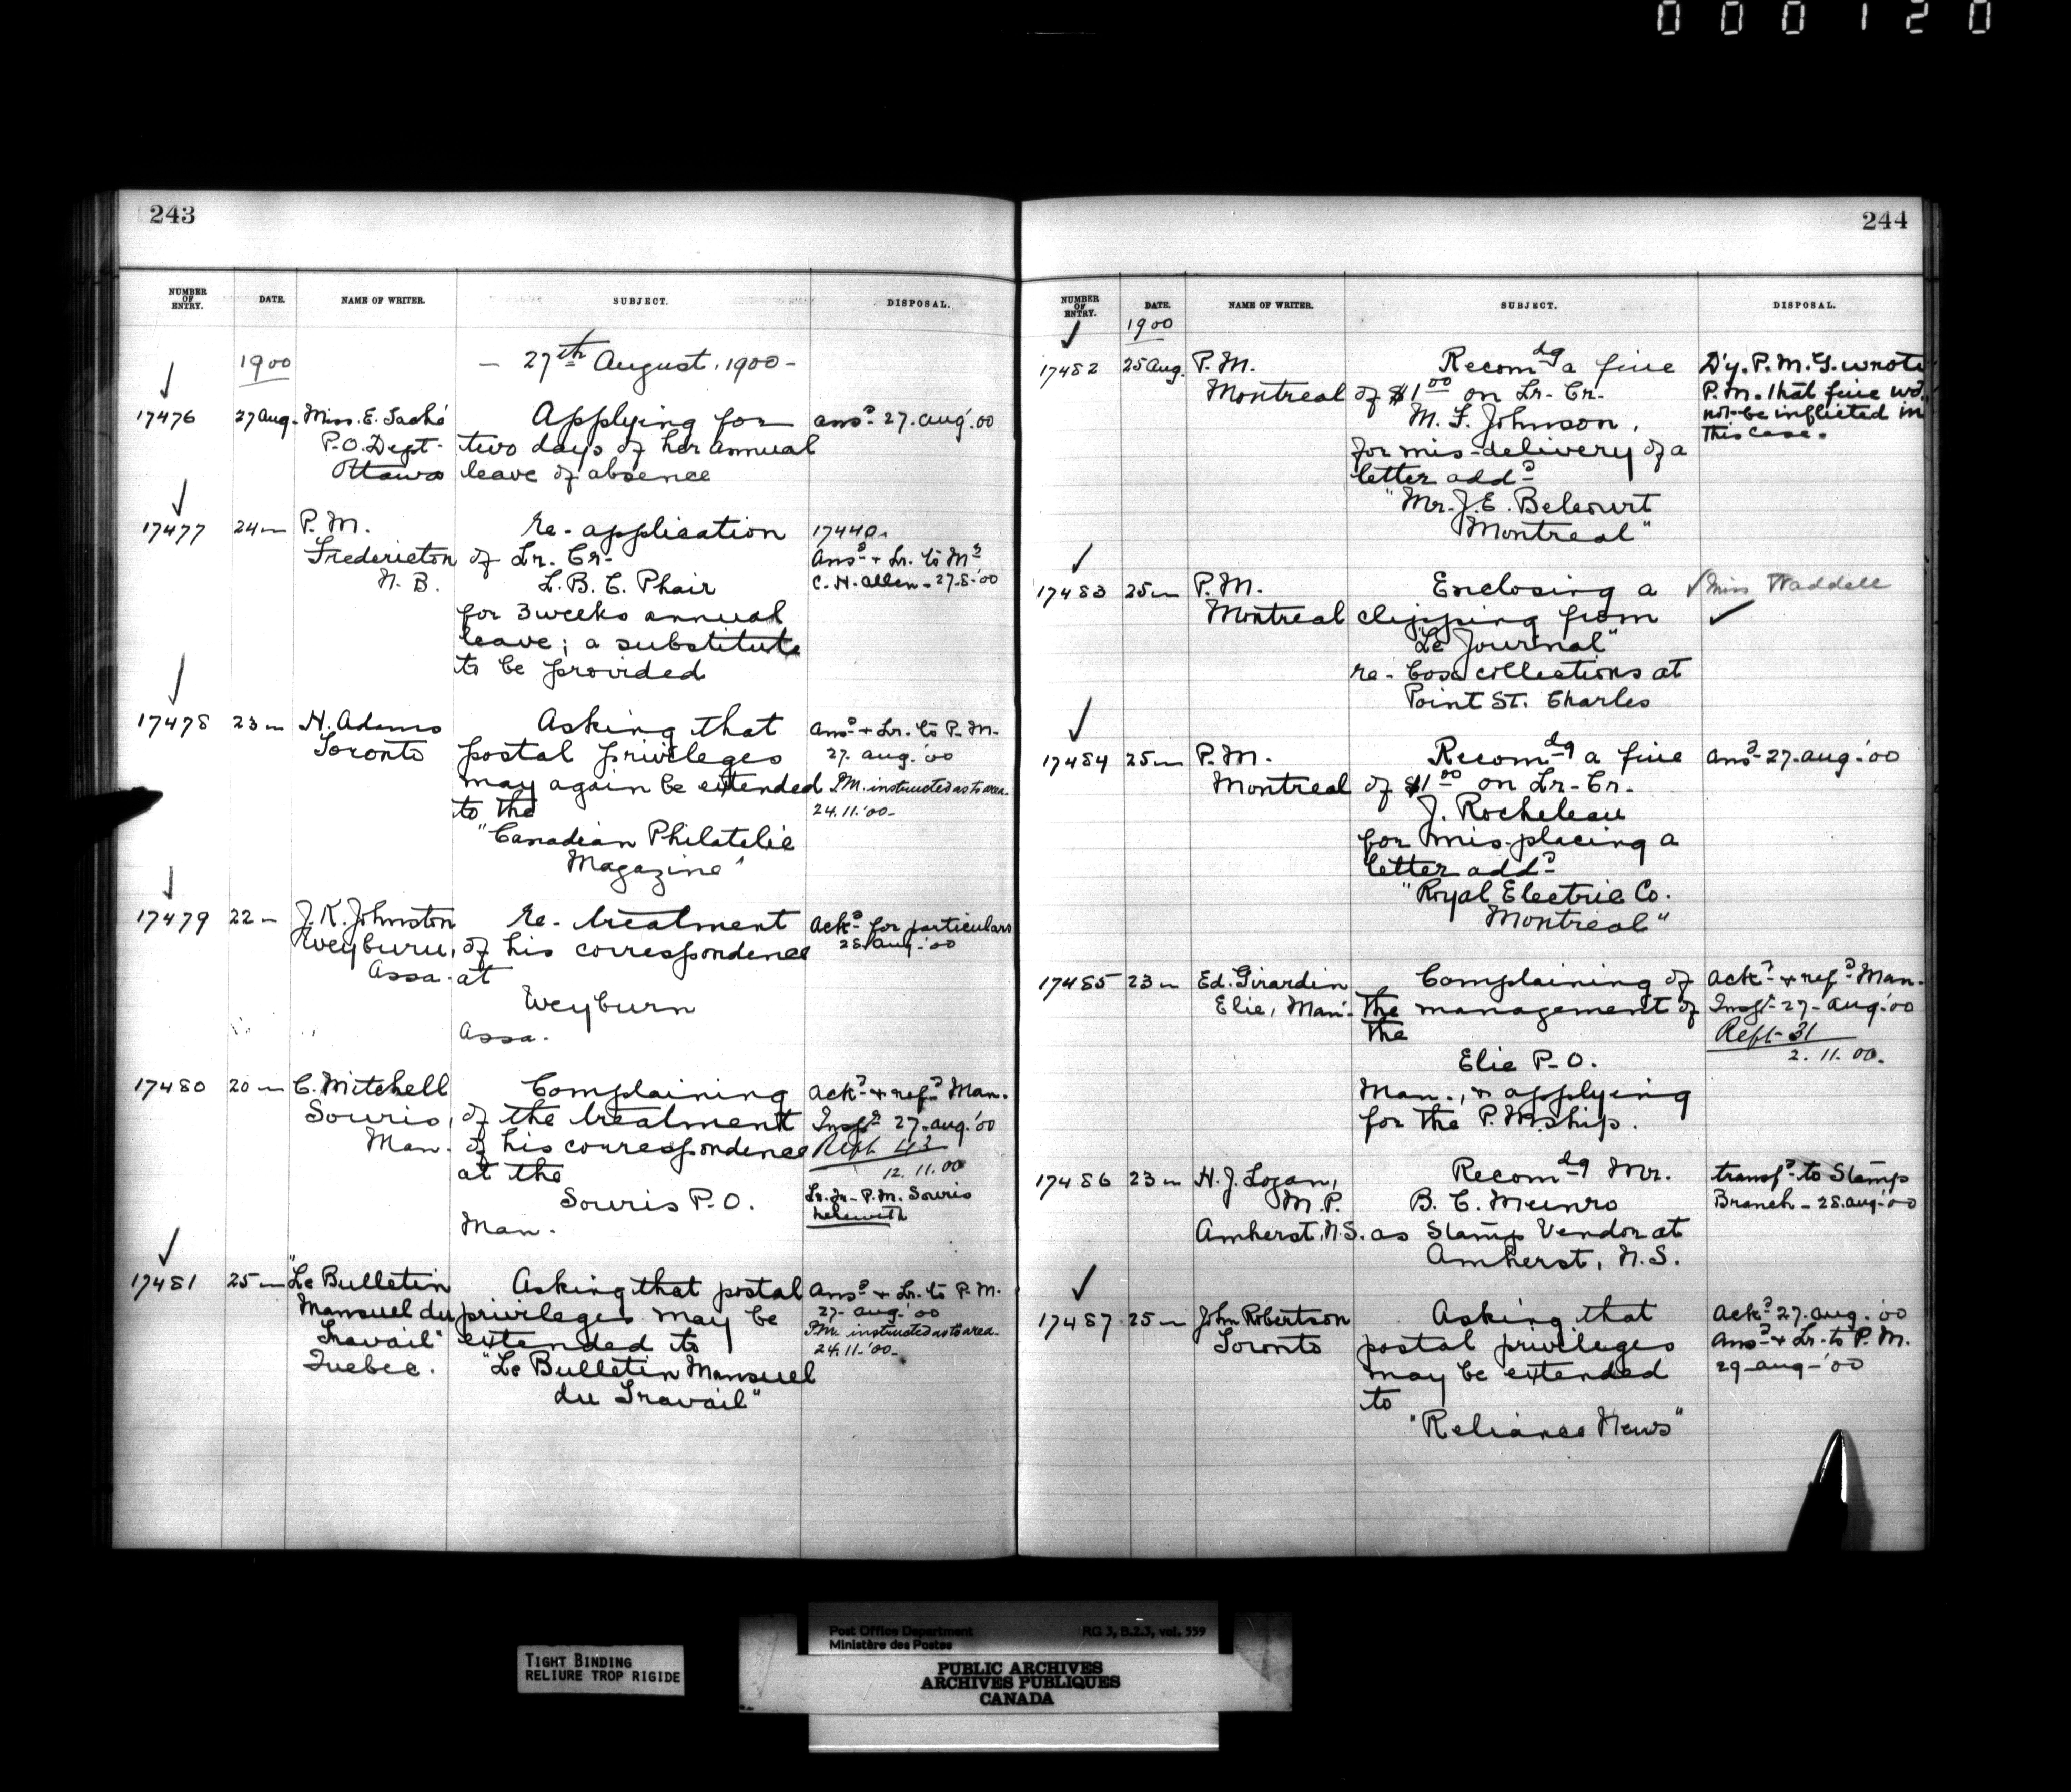 000120
243
NUMBER OF ENTRY. DATE. NAME OF WRITER. SUBJECT. DISPOSAL.
1900 - 27th August, 1900 -
17476 27 Aug. Miss. E. Taché Applying for ansd. 27. aug. '00
P.O. Dept. two days of her annual
Ottawa leave of absence
17477 24 " P.M. re- application 17440.
Fredericton of Lr. Cr. Ansd. + Lr. to Mr
N. B. L. B. C. Phair C. H. Allen - 27-8-'00
for 3 weeks annual
leave; a substitute
to be provided
17478 23 " H. Adams Asking that Ansd. + Lr. to P.M.
Toronto postal privileges 27. aug. '00
may again be extended P.M. instructed as to area.
to the 24.11.'00-
"Canadian Philatelic
Magazine"
17479 22 " J. K. Johnston re- treatment Ackd. for particulars
Weyburn, of his correspondence 28. aug. '00
Assa. at
Weyburn
Assa.
17480 20 " C. Mitchell Complaining Ackd. + refd. Man.
Souris, of the treatment Inspr. 27. aug. '00
Man. of his correspondence Rept. 43
at the 12. 11. 00
Souris P.O. Lr. fr. P.M. Souris
Man. herewith
17481 25 " "Le Bulletin Asking that postal Ansd. + Lr. to P.M.
Mansuel du privileges may be 27. aug. '00
Travail" extended to P.M. instructed as to area.
Quebec. "Le Bulletin Mansuel 24.11.'00-
du Travail"
244
NUMBER OF ENTRY. DATE. NAME OF WRITER. SUBJECT. DISPOSAL.
1900
17482 25 Aug. P.M. Recomdg a fine D'y. P.M.G. wrote
Montreal of $1.00 on Lr. Cr. P.M. that fine wd.
M. F. Johnson, not be inflicted in
for mis-delivery of a this case.
letter addd.
"Mr. J. E. Belcourt
Montreal"
17483 25 " P.M. Enclosing a Miss Waddell
Montreal clipping from
"Le Journal"
re- box collections at
Point St. Charles
17484 25 " P.M. Recomdg a fine Ansd. 27. aug. '00
Montreal of $1.00 on Lr. Cr.
J. Rocheleau
for mis-placing a
letter addd.
"Royal Electric Co.
Montreal"
17485 23 " Ed. Girardin Complaining of Ackd. + refd. Man.
Elie, Man. the management of Inspr. 27. aug. '00
the Rept. 31
Elie P.O. 2. 11. 00.
Man., + applying
for the P.M.ship.
17486 23 " H. J. Logan, Recomdg Mr. transfd. to Stamp
M.P. B. C. Munro Branch - 28. aug. '00
Amherst, N.S. as Stamp Vendor at
Amherst, N.S.
17487 25 " John Robertson Asking that Ackd. 27. aug. '00
Toronto postal privileges Ansd. + Lr. to P.M.
may be extended 29- aug- '00
to
"Reliance News"
Post Office Department RG 3, B.2.3, vol. 559
Ministère des Postes
TIGHT BINDING
RELIURE TROP RIGIDE
PUBLIC ARCHIVES
ARCHIVES PUBLIQUES
CANADA